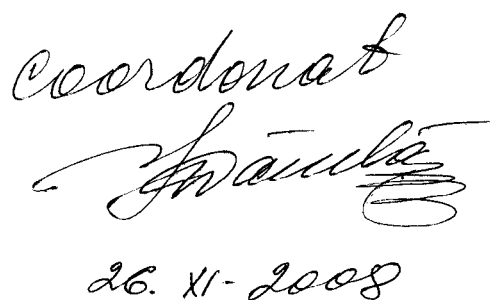 coordonat
26. XI - 2008